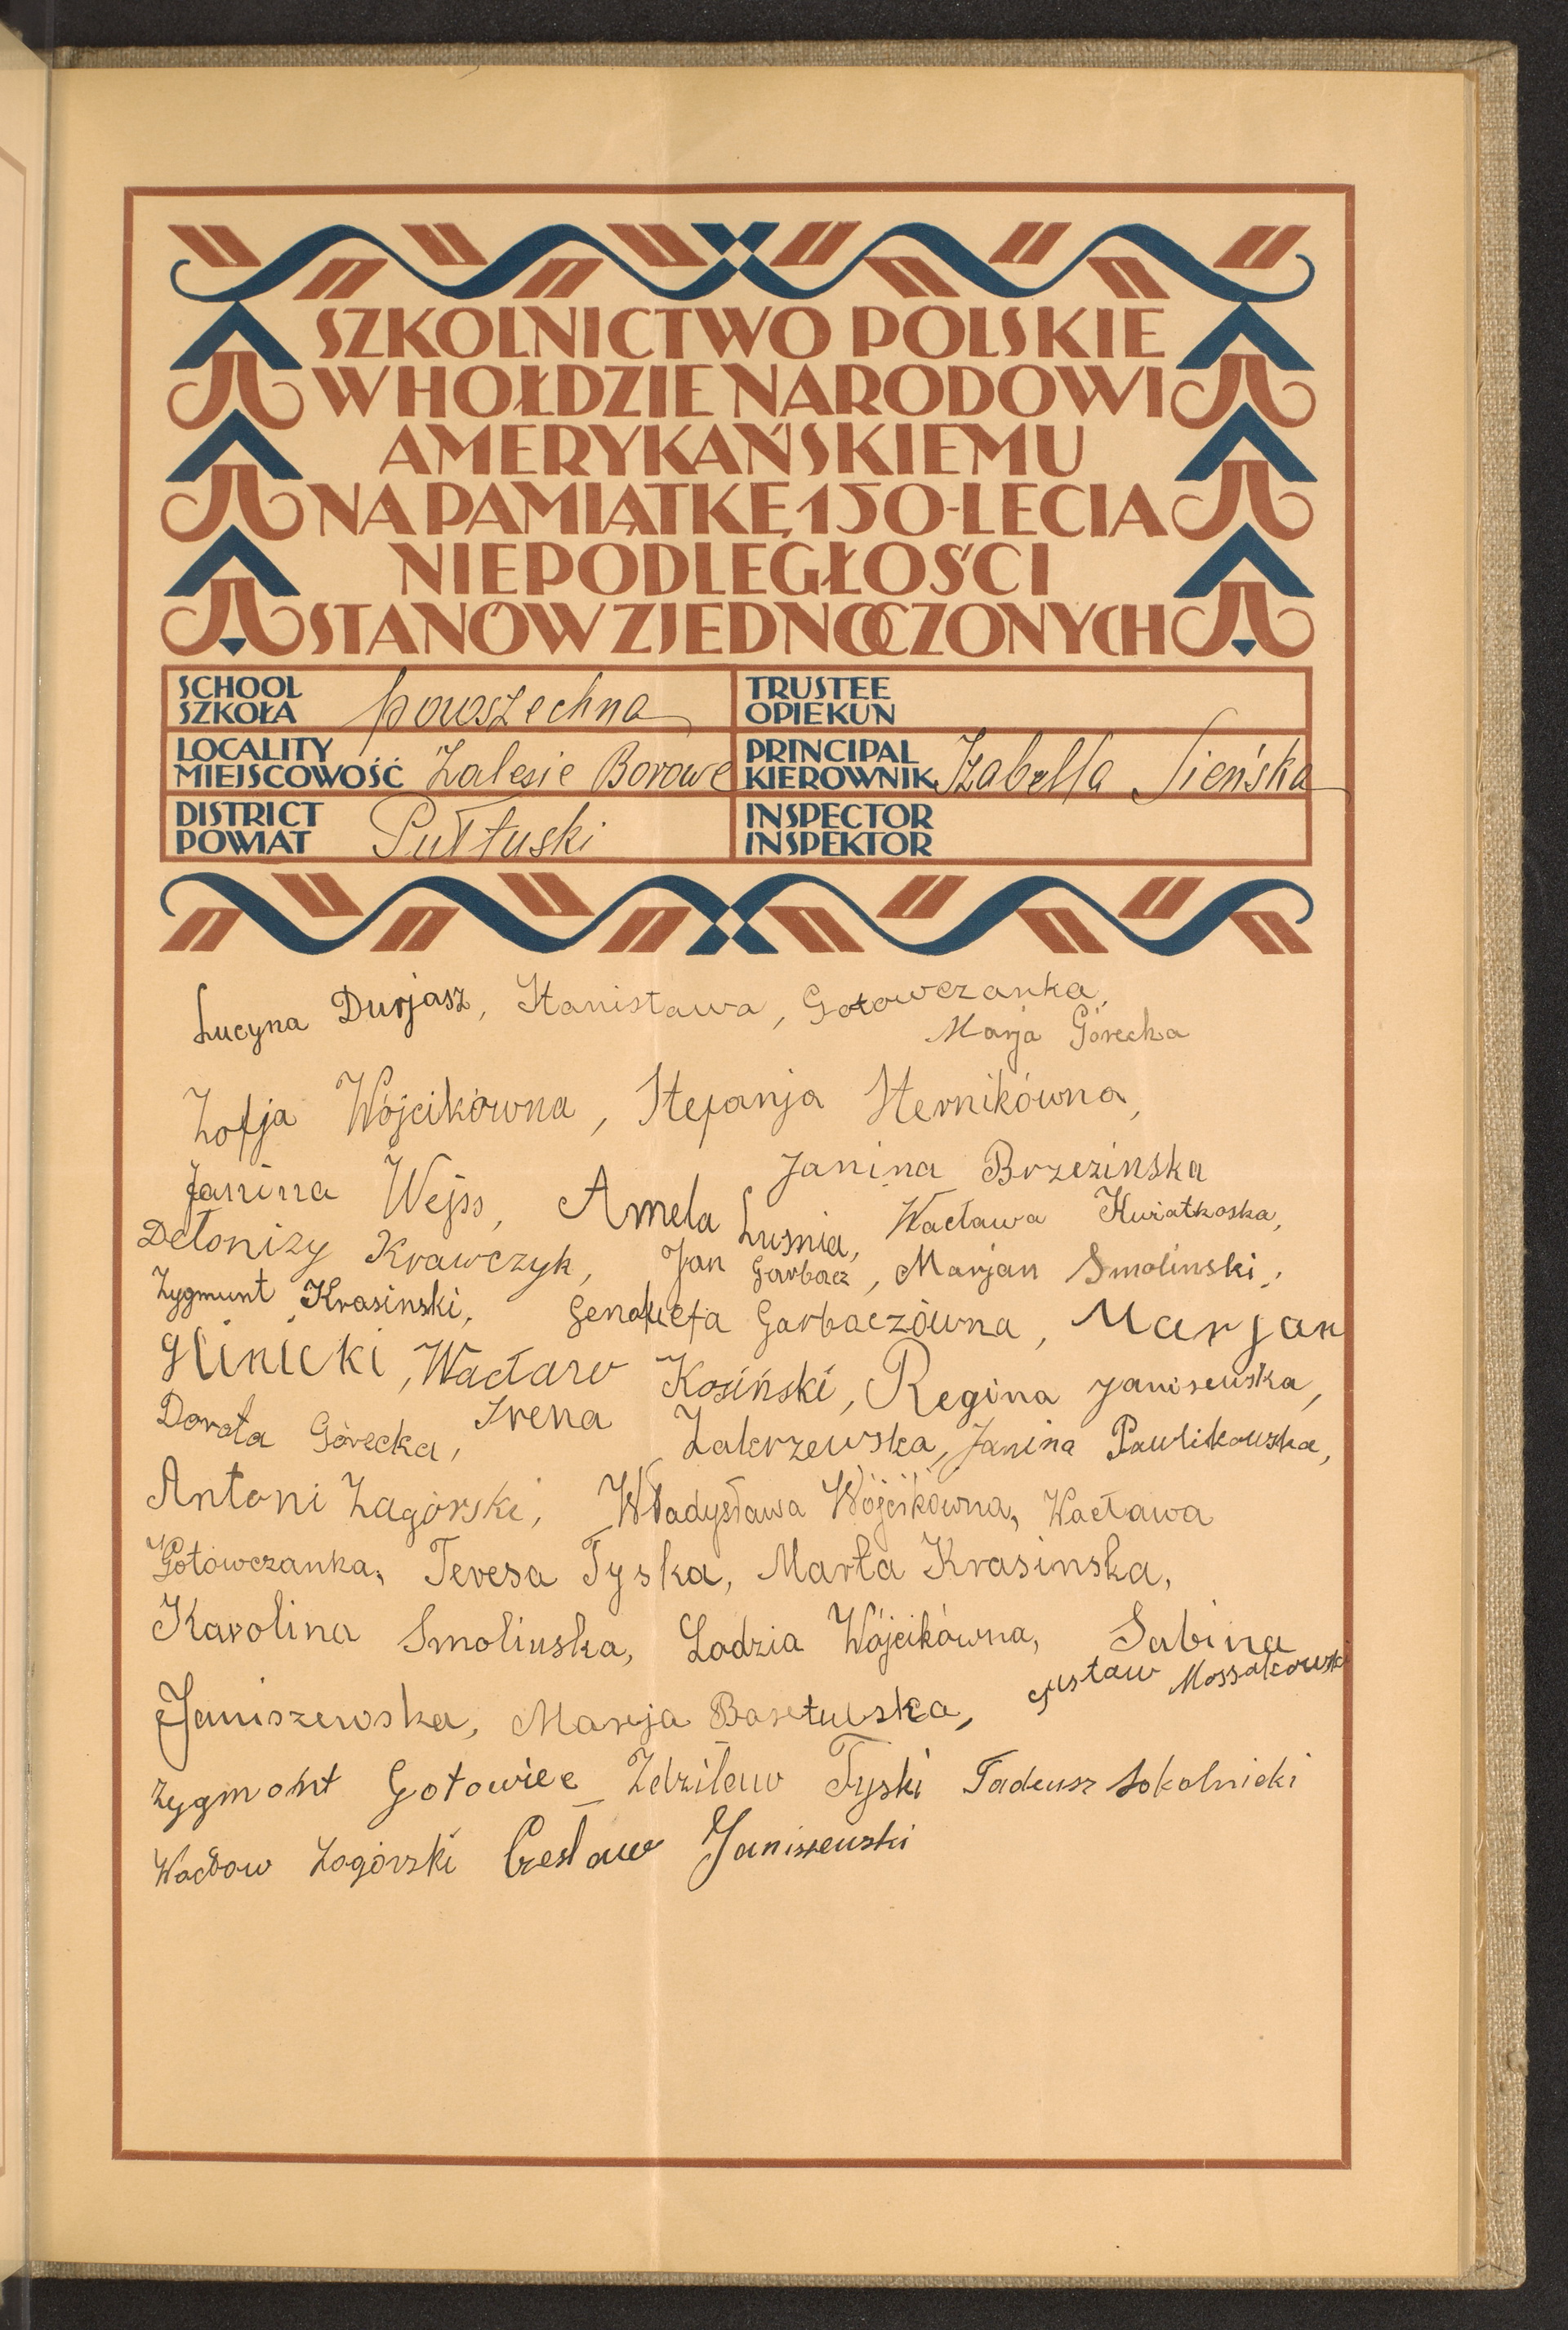 SZKOLNICTWO POLSKIE
W HOŁDZIE NARODOWI
AMERYKAŃSKIEMU
NA PAMIĄTKĘ 150-LECIA
NIEPODLEGŁOŚCI
STANÓW ZJEDNOCZONYCH
SCHOOL
SZKOŁA powszechna
TRUSTEE
OPIEKUN
LOCALITY
MIEJSCOWOŚĆ Zalesie Borowe
PRINCIPAL
KIEROWNIK Izabella Sieńska
DISTRICT
POWIAT Pułtuski
INSPECTOR
INSPEKTOR
Lucyna Durjasz, Stanisława, Gotowczanka,
Marja Górecka
Zofja Wójcikówna, Stefanja Sternikówna,
Janina Brzezinska
Janina Wejss, Amela Lusnia, Wacława Kwiatkoska,
Detonizy Krawczyk, Jan Garbacz, Marjan Smolinski,
Zygmunt Krasinski, Genowefa Garbaczówna, Marjan
Glinicki, Wacław Kosiński, Regina Janisewska,
Dorota Górecka, Irena Zakrzewska, Janina Pawlikowska,
Antoni Zagórski, Władysława Wójcikówna, Wacława
Gotowczanka, Teresa Tyska, Marta Krasinska,
Karolina Smolinska, Lodzia Wójcikówna, Sabina
Gustaw Mossakowski
Janiszewska, Marja
Zygmont Gotowiec Zdziław Tyski Tadeusz Sokolnicki
Wacław Zagórski Czesław Janiszewski